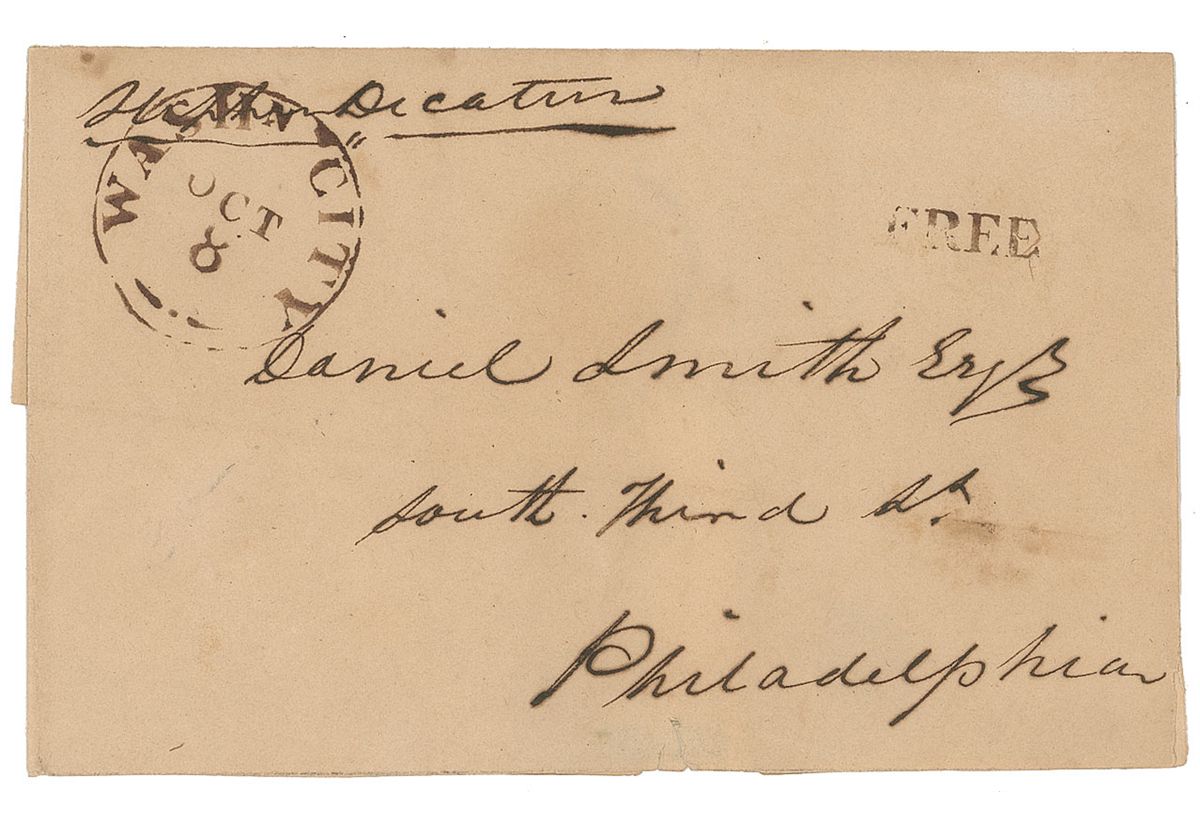 Stephen Decatur
WASHN. CITY
OCT
8
FREE
Daniel Smith Esqr
south Third St.
Philadelphia